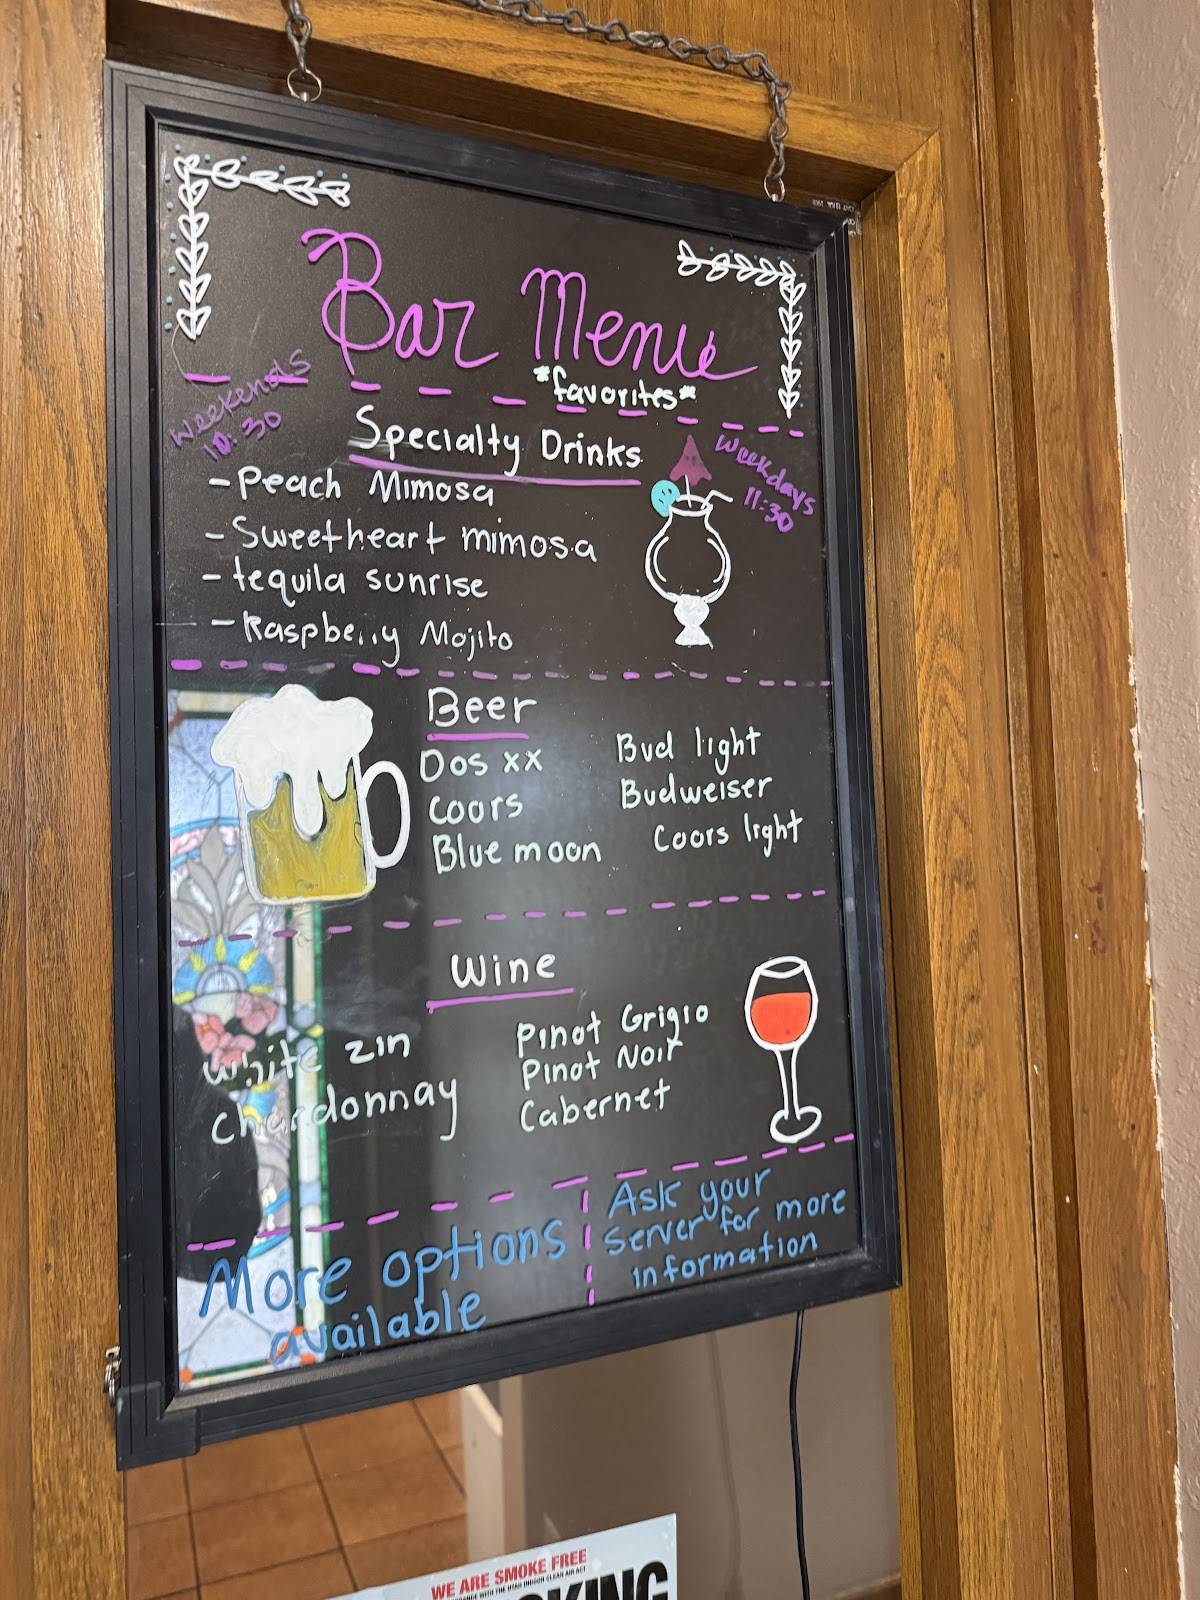 Bar Menu
*favorites*
Weekends
10:30
Specialty Drinks
Weekdays
11:30
- Peach Mimosa
- Sweetheart mimosa
- tequila sunrise
- Raspberry Mojito
Beer
Dos xx
Bud light
Coors
Budweiser
Blue moon
Coors light
Wine
White zin
Pinot Grigio
Chardonnay
Pinot Noir
Cabernet
More options
available
Ask your
server for more
information
WE ARE SMOKE FREE